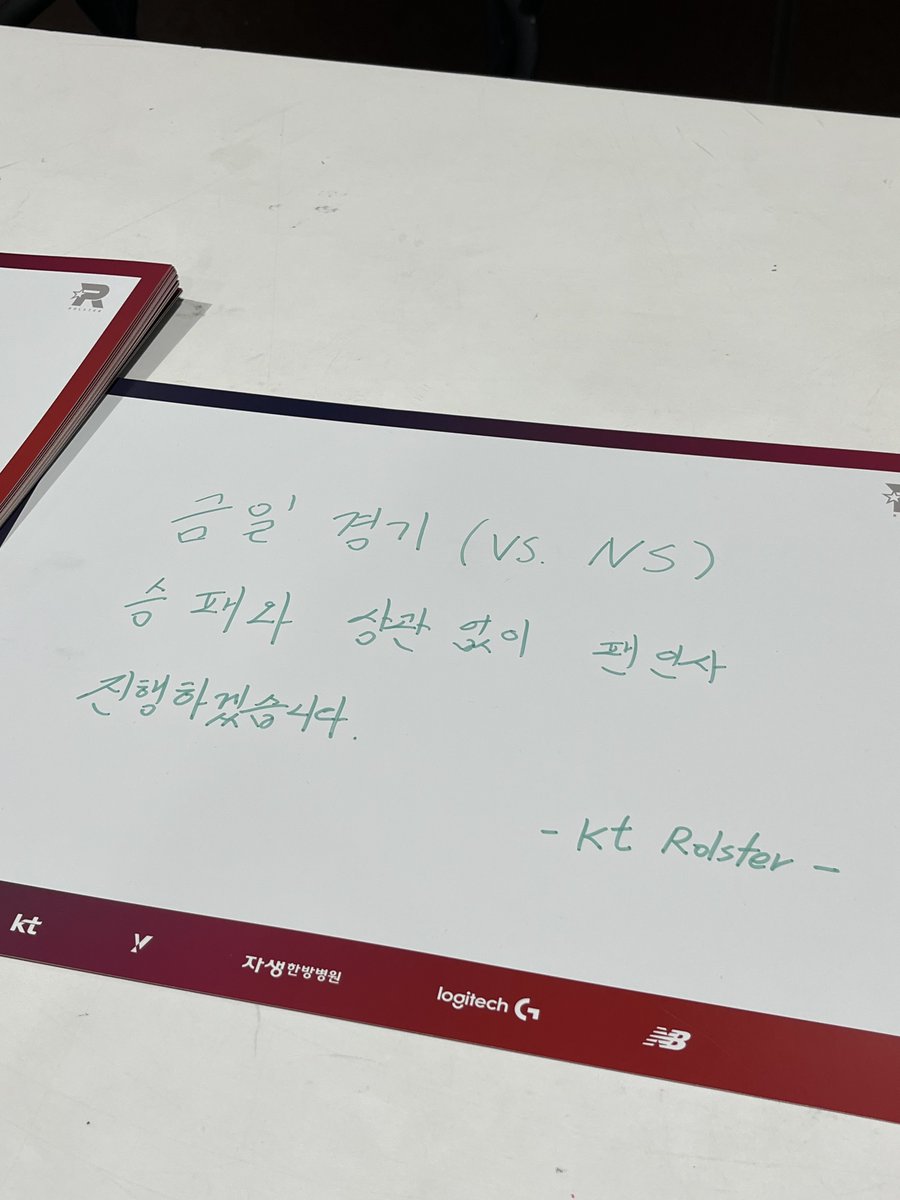 R
ROLSTER
금일 경기 (VS. NS)
승패와 상관 없이 팬 인사
진행하겠습니다.
- kt Rolster -
kt
Y
자생한방병원
logitech G
NB